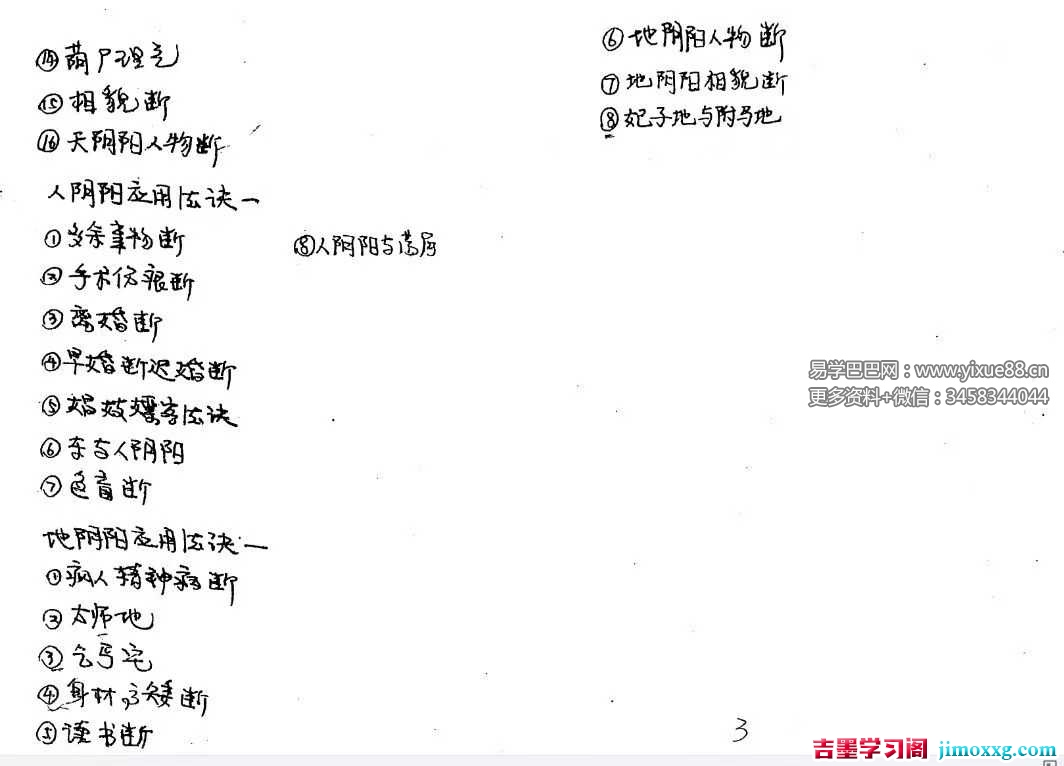 ⑭葫尸理气
⑮相貌断
⑯天阴阳人物断
人阴阳应用法诀一
①多余事物断
②手术伤痕断
③离婚断
④早婚断迟婚断
⑤娼妓嫖客法诀
⑥车与人阴阳
⑦色盲断
⑧人阴阳与房
地阴阳应用法诀一
①病人精神病断
②太师地
③乞丐宅
④身材高矮断
⑤读书断
⑥地阴阳人物断
⑦地阴阳相貌断
⑧妃子地与附马地
易学巴巴网：www.yixue88.cn
更多资料+微信：3458344044
3
吉墨学习阁 jimoxxg.com